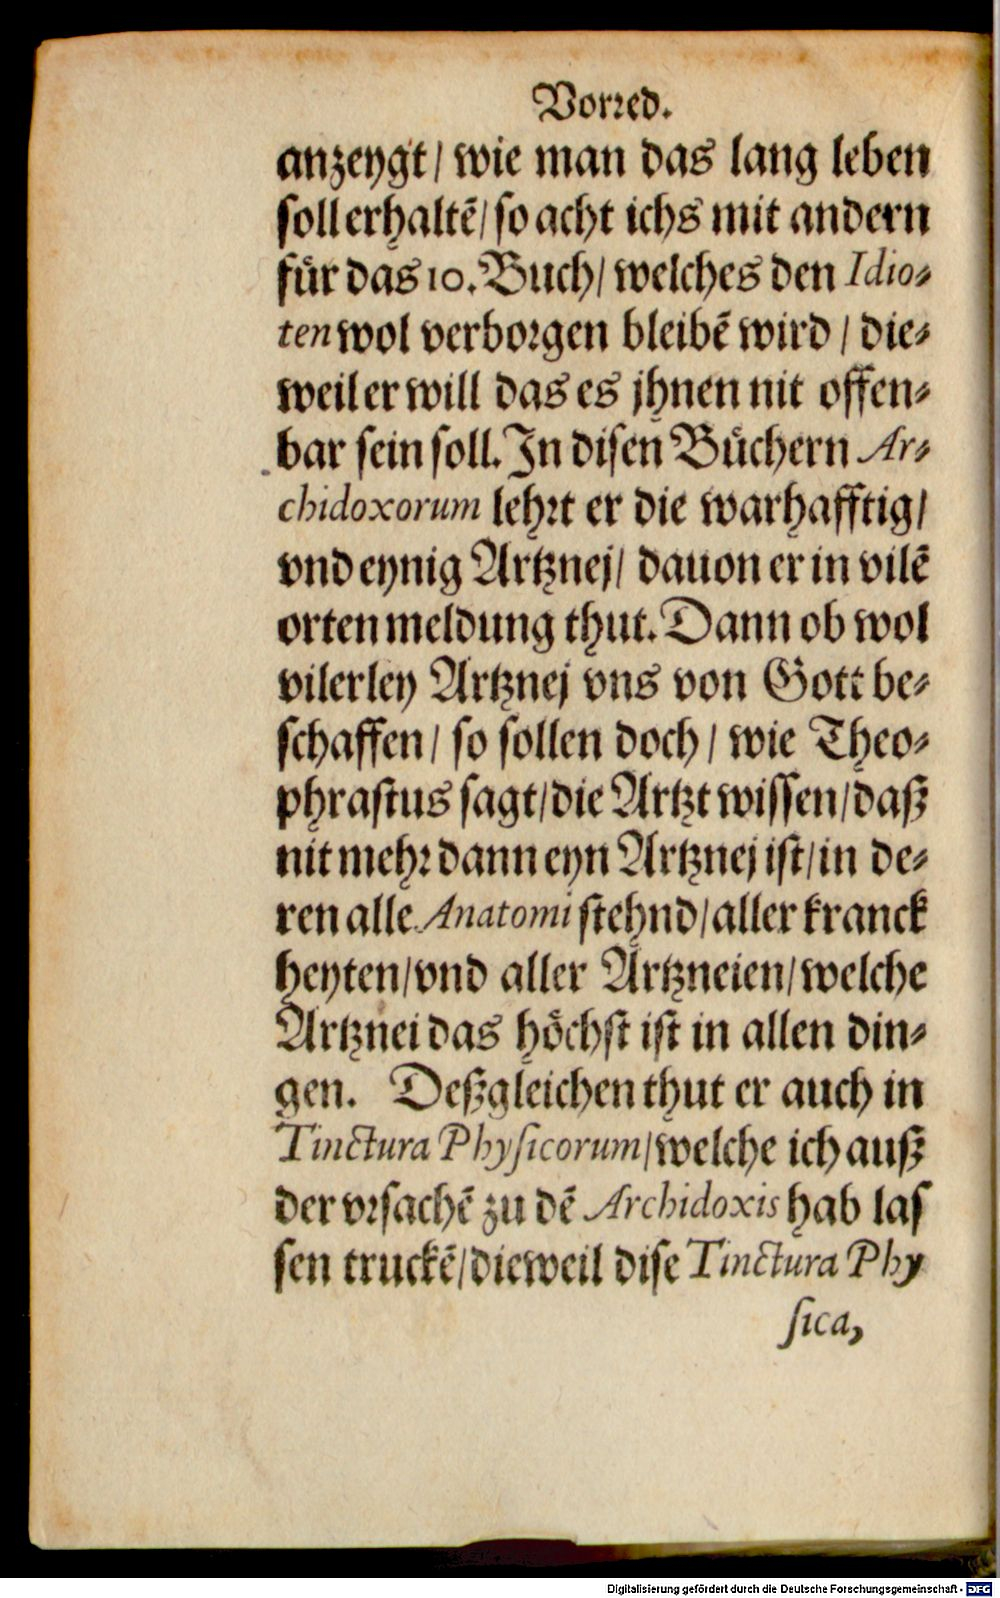 Vorred.
anzeygt/ wie man das lang leben
soll erhaltē/ so acht ichs mit andern
fuͤr das 10. Buch/ welches den Idio-
ten wol verborgen bleibē wird / die-
weil er will das es jhnen nit offen-
bar sein soll. In disen Buͤchern Ar-
chidoxorum lehrt er die warhafftig/
vnd eynig Artznej/ dauon er in vilē
orten meldung thut. Dann ob wol
vilerley Artznej vns von Gott be-
schaffen/ so sollen doch/ wie Theo-
phrastus sagt/ die Artzt wissen/ daß
nit mehr dann eyn Artznej ist/ in de-
ren alle Anatomi stehnd/ aller kranck
heyten/ vnd aller Artzneien/ welche
Artznei das hoͤchst ist in allen din-
gen. Deßgleichen thut er auch in
Tinctura Physicorum/ welche ich auß
der vrsachē zu dē Archidoxis hab las
sen truckē/ dieweil dise Tinctura Phy
sica,
Digitalisierung gefördert durch die Deutsche Forschungsgemeinschaft - DFG